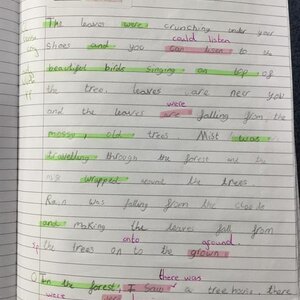 The leaves were crunching under your
could listen
shoes and you can listen to the
beautiful birds singing on top of
the tree, leaves are near you
were
and the leaves are falling from the
mossy, old trees. Mist was
travelling through the forest and the
wrapped around the trees
Rain was falling from the clouds
and making the leaves fall from
onto ground.
sp the trees on to the grown
there was
In the forest, I saw a tree house, there
were